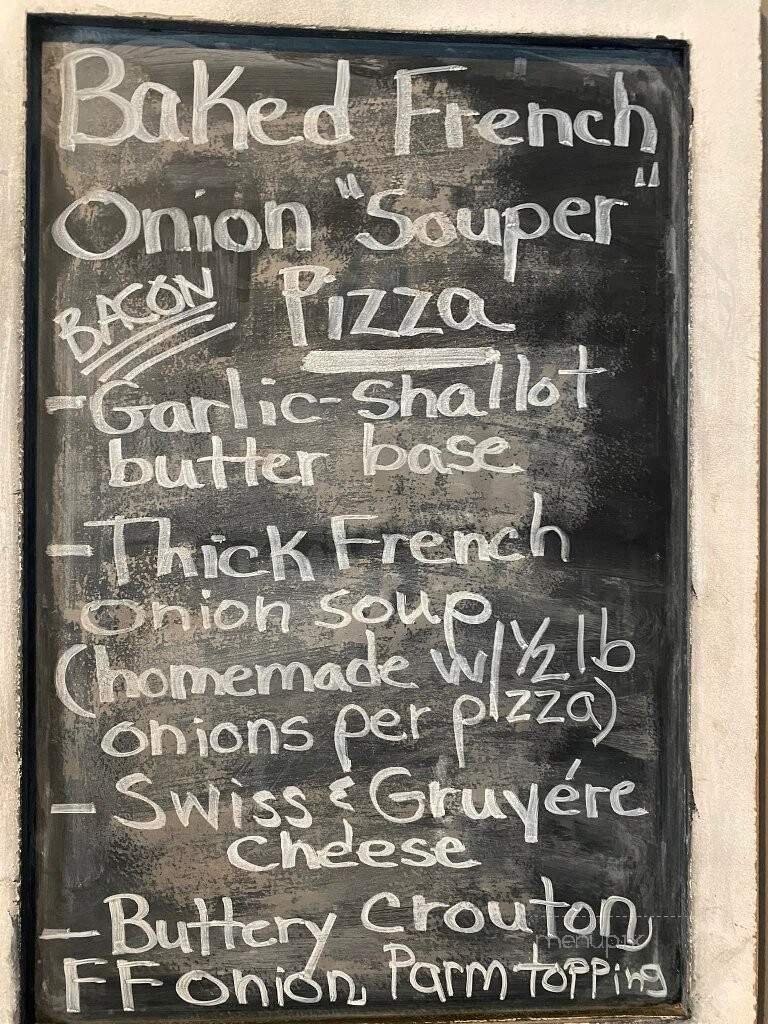 Baked French
Onion "Souper"
BACON Pizza
- Garlic-shallot
butter base
- Thick French
onion soup
(homemade w/ 1/2 lb
onions per pizza)
- Swiss & Gruyére
cheese
- Buttery crouton,
FF onion, Parm topping
menupix